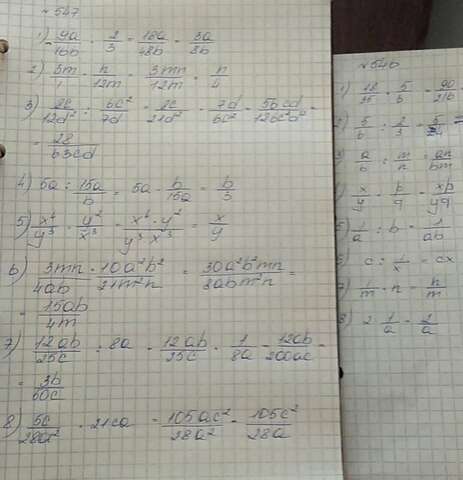 №547
1) 9a/16b · 2/3 = 18a/48b = 3a/8b
2) 3m/1 · n/12m = 3mn/12m = n/4
3) 8c/21d² : 6c²/7d = 8c/21d² · 7d/6c² = 56cd/126c²d² =
= 28/63cd
4) 5a : 15a/b = 5a · b/15a = b/3
5) x⁴/y³ · y²/x³ = x⁴·y²/y³x³ = x/y
6) 3mn/4ab · 10a²b²/21m²n = 30a²b²mn/8abm²n =
= 15ab/4m
7) 12ab/25c : 8a = 12ab/25c · 1/8a = 12ab/200ac =
= 3b/50c
8) 5c/28a² · 21ca = 105ac²/28a² = 105c²/28a
№546
5/6 : 2/3
a/b : m/n = an/bm
x/y · p/q = xp/yq
1/a : b = 1/ab
c : 1/x = cx
7) 1/m · n = n/m
8) 2 · 1/a = 2/a